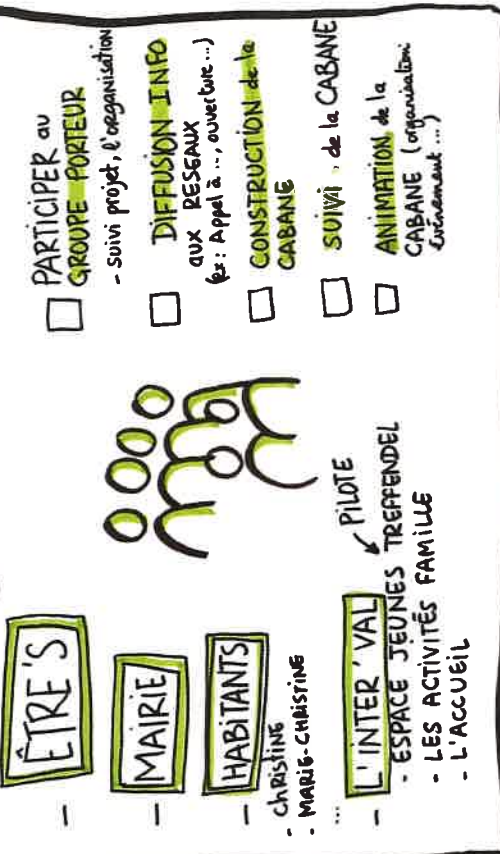 - ÊTRE'S
- MAIRIE
- HABITANTS
- CHRISTINE
- MARIE-CHRISTINE
...
- L'INTER'VAL
PILOTE
- ESPACE JEUNES TREFFENDEL
- LES ACTIVITÉS FAMILLE
- L'ACCUEIL
PARTICIPER au
GROUPE PORTEUR
- suivi projet, l'organisation
DIFFUSION INFO
AUX RESEAUX
(ex: Appel à ..., ouverture ...)
CONSTRUCTION de la
CABANE
SUIVI. de la CABANE
ANIMATION de la
CABANE (organisation
événement ...)